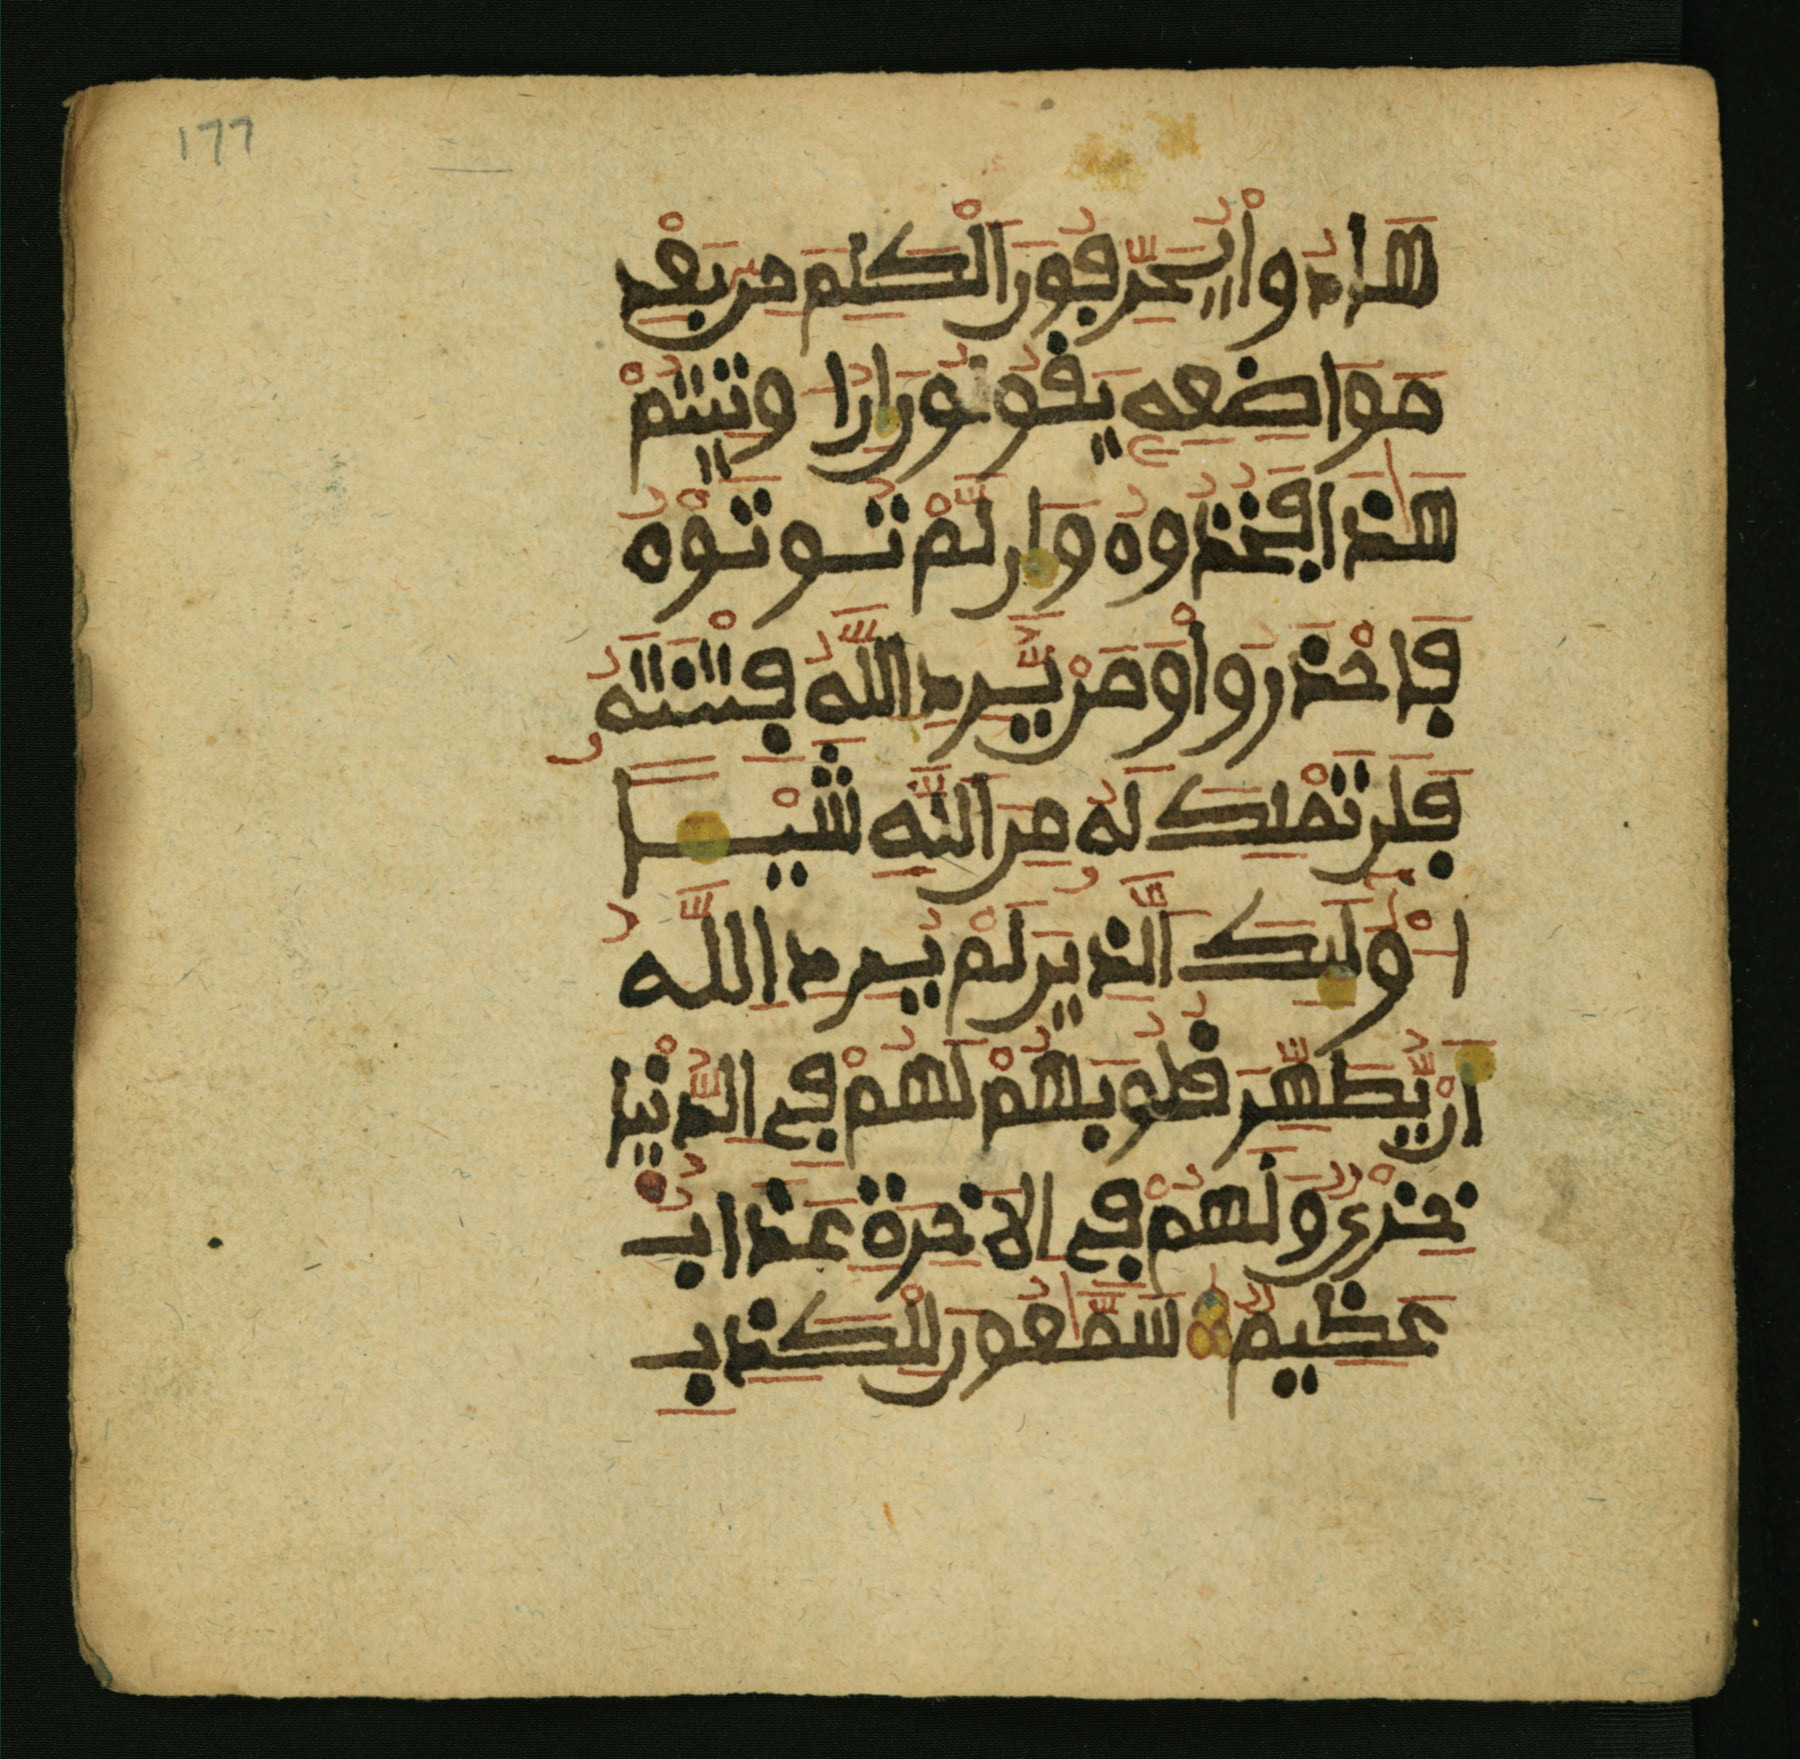 177
هَادُواْ يُحَرِّفُونَ الْكَلِمَ مِن بَعْدِ
مَوَاضِعِهِ يَقُولُونَ إِنْ أُوتِيتُمْ
هَٰذَا فَخُذُوهُ وَإِن لَّمْ تُوتَوْهُ
فَاحْذَرُواْ وَمَنْ يُّرِدِ اللَّهُ فِتْنَتَهُ
فَلَن تَمْلِكَ لَهُ مِنَ اللَّهِ شَيْـًٔا
أُوْلَٰئِكَ الَّذِينَ لَمْ يُرِدِ اللَّهُ
أَنْ يُّطَهِّرَ قُلُوبَهُمْ لَهُمْ فِي الدُّنْيَا
خِزْيٌ وَلَهُمْ فِي الَاخِرَةِ عَذَابٌ
عَظِيمٌ سَمَّٰعُونَ لِلْكَذِبِ